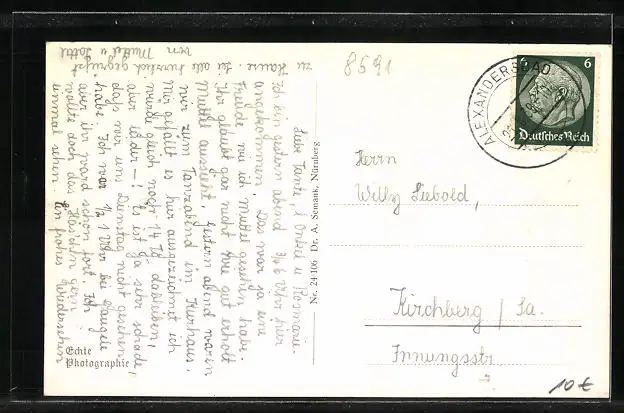 8591
6 6
ALEXANDERSBAD
Deutsches Reich
Herrn
Willy Liebold,
Kirchberg / Sa.
Innungsstr
10 €
Nr. 24 106 Dr. A. Semank, Nürnberg
Echte
Photographie
Liebe Tante, l. Onkel u. Rosmarie.
Ich bin gestern abend 3/4 6 Uhr hier
angekommen. Das war ja eine
Freude wie ich Muttel gesehen habe.
Ihr glaubt gar nicht wie gut erholt
Muttel aussieht. Gestern abend waren
wir zum Tanzabend im Kurhaus.
Mir gefällt es hier ausgezeichnet ich
würde gleich noch 14 Td. dableiben,
aber leider – ! Es ist ja sehr schade,
daß wir uns Dienstag nicht gesehen
habe. Ich war 1/2 1 Uhr bei
aber ihr ward schon fort. Ich
wollte doch das Häschen gern
einmal sehen. Ein frohes Wiedersehen
zu Hause. Sei all herzlich gegrüßt
von Muttel u.